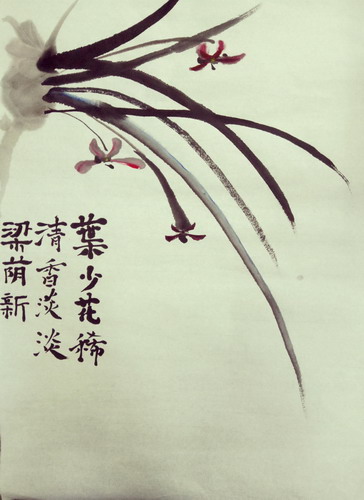 葉少花稀
清香淡淡
梁荫新